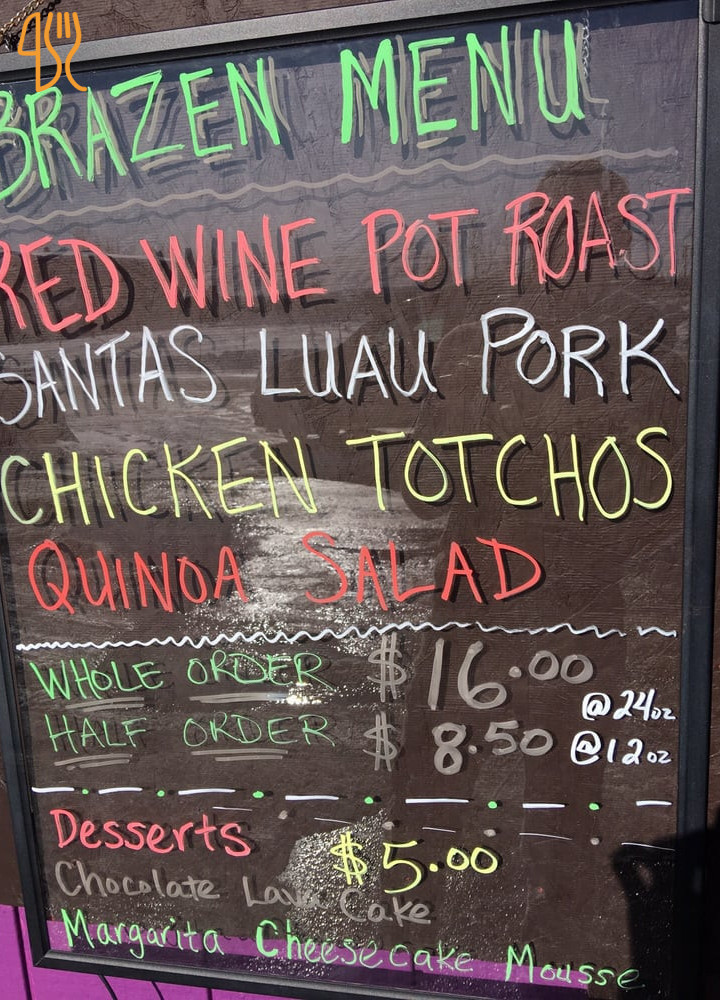 BRAZEN MENU
RED WINE POT ROAST
SANTAS LUAU PORK
CHICKEN TOTCHOS
QUINOA SALAD
WHOLE ORDER $16.00 @24oz
HALF ORDER $8.50 @12oz
Desserts $5.00
Chocolate Lava Cake
Margarita Cheesecake Mousse